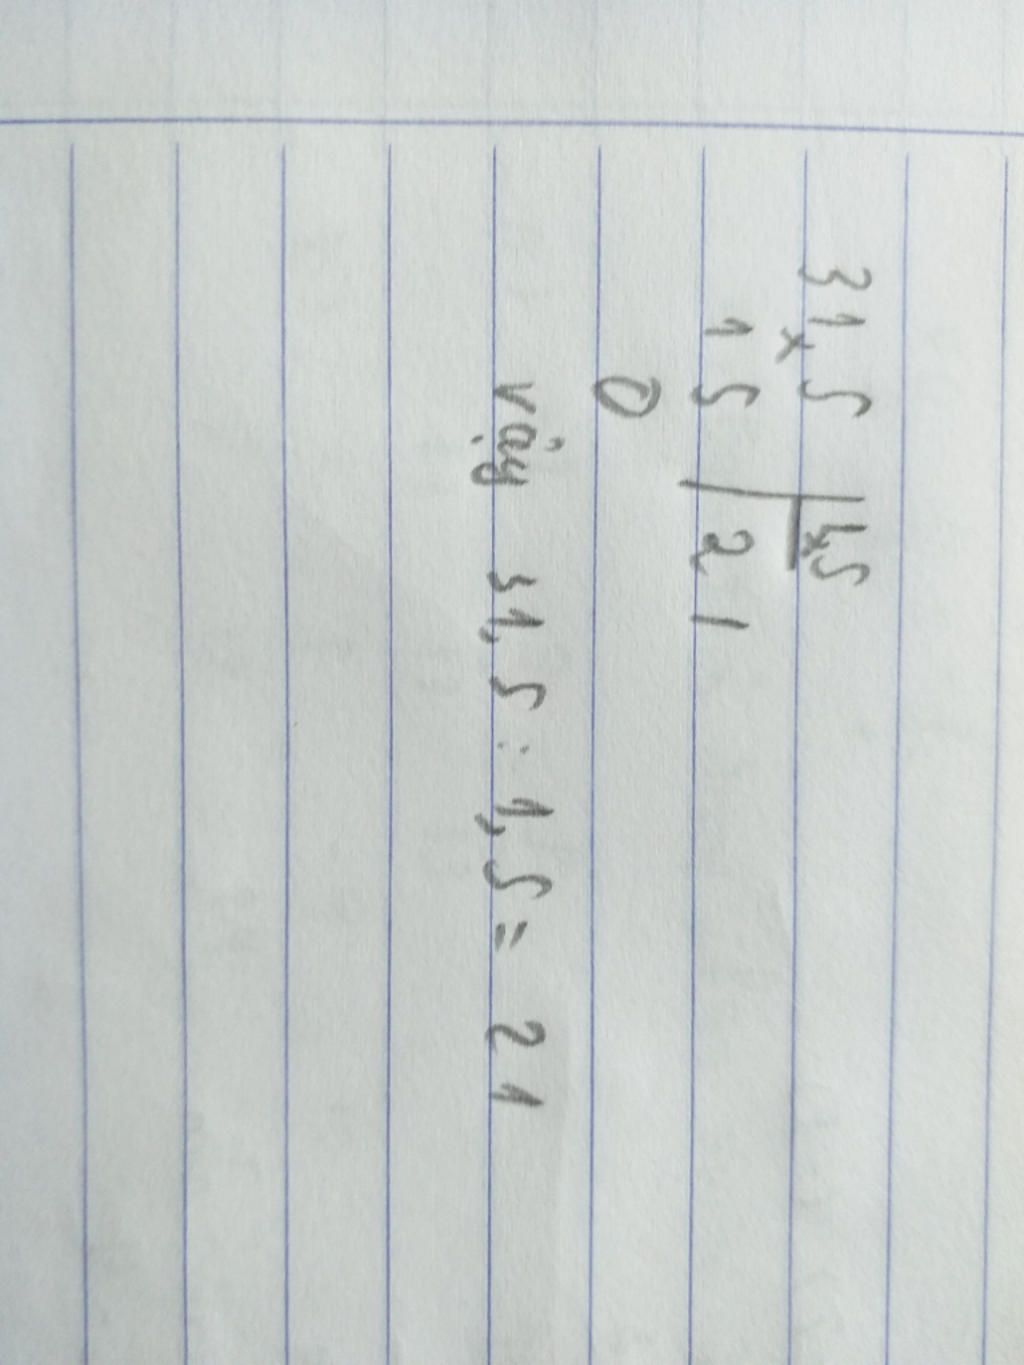 31,5 1,5
15 21
0
vậy 31,5 : 1,5 = 21